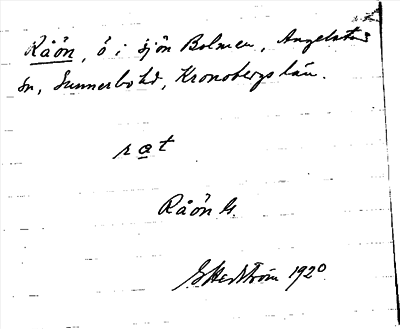 Råön, ö i sjön Bolmen, Angelstads
sn, Sunnerbo hd, Kronobergs län.
rat
Råön G.
1920